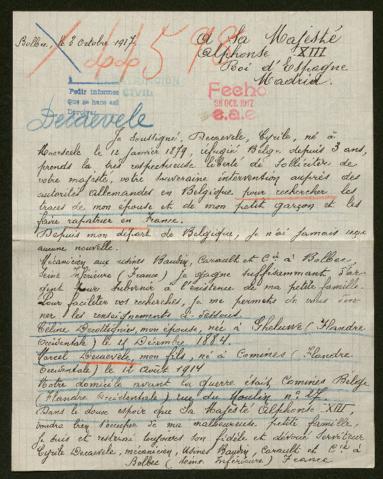 Bolbec, le 8 Octobre 1917
A Sa Majesté
Alphonse XIII
Roi d'Espagne
Madrid.
Pedir informes
Que se hans est
CIVIL
Fecho
26 OCT. 1917
e.a.e
Decdevele
Je soussigné, Decaevele, Cyrile, né à
le 12 janvier 1879, réfugié Belge depuis 3 ans,
prends la très respectueuse liberté de solliciter de
votre majesté, votre souveraine intervention auprès des
autorités Allemandes en Belgique pour rechercher les
traces de mon épouse et de mon petit garçon et les
faire rapatrier en France.
Depuis mon départ de Belgique, je n'ai jamais reçu
aucune nouvelle.
Mécanicien aux usines Baudry, Carault et Cie à Bolbec
Seine Inférieure (France) je gagne suffisamment d'ar-
gent pour subvenir à l'existence de ma petite famille.
Pour faciliter vos recherches, je me permets de vous don-
ner les renseignements ci-dessous.
Céline mon épouse, née à Gheluwe (Flandre
Occidentale) le 25 Décembre 1884.
Marcel Decaevele, mon fils, né à Comines (Flandre
Occidentale) le 14 Août 1914
Notre domicile avant la guerre était Comines Belge
(Flandre Occidentale) rue du Moulin n° 27.
Dans le doux espoir que Sa Majesté Alphonse XIII,
voudra bien s'occuper de ma malheureuse petite famille,
Je suis et resterai toujours son fidèle et dévoué serviteur
Cyrile Decaevele, mécanicien, Usines Baudry, Carault et Cie à
Bolbec (Seine Inférieure) France